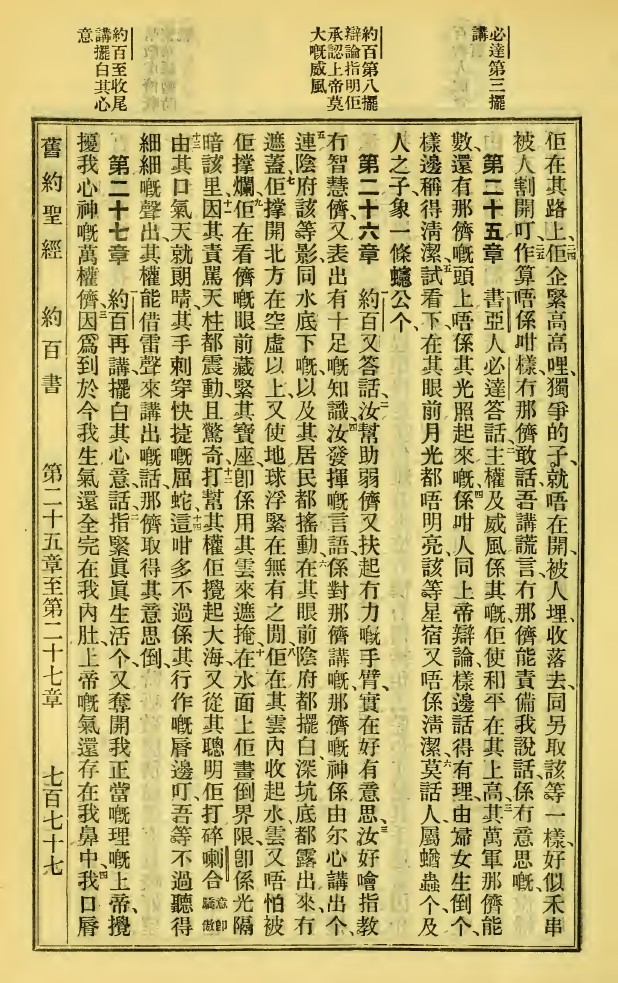 必達第三擺
講
約百第八擺
辯論指明佢
承認上帝莫
大嘅威風
約百至收尾
講擺白其心
意
佢在其路上、二四佢企緊高高哩、獨爭的子、就唔在開、被人埋收落去、同另取該等一樣、好似禾串
被人割開叮作算、二五唔係咁樣、冇那儕敢話吾講謊言、冇那儕能責備我說話、係冇意思嘅、
第二十五章 一書亞人必達答話、二主權及威風係其嘅、佢使和平在其上高、三其萬軍那儕能
數、還有那儕嘅頭上唔係其光照起來嘅、四係咁人同上帝辯論樣邊話得有理、由婦女生倒个、
樣邊稱得清潔、五試看下、在其眼前月光都唔明亮、該等星宿又唔係清潔、六莫話人屬蝤蟲个、及
人之子象一條蟪公个、
第二十六章 一約百又答話、二汝幫助弱儕、又扶起冇力嘅手臂、實在好有意思、三汝好噲指教
冇智慧儕、又表出有十足嘅知識、四汝發揮嘅言語係對那儕講嘅、那儕嘅神係由尔心講出个、
五連陰府該等影、同水底下嘅、以及其居民都搖動、六在其眼前陰府都擺白、深坑底都露出來、冇
遮蓋、七佢撑開北方在空虛以上、又使地球浮緊在無有之間、八佢在其雲內收起水、雲又唔怕被
佢撑爛、九佢在看儕嘅眼前藏緊其寶座、卽係用其雲來遮掩、十在水面上佢畫倒界限、卽係光隔
暗該里、十一因其責罵、天柱都震動、且驚奇打幫、十二其權佢攪起大海、又從其聰明佢打碎喇合意卽驕傲
十三由其口氣天就朗晴、其手刺穿快捷嘅屈蛇、十四這咁多不過係其行作嘅脣邊叮、吾等不過聽得
細細嘅聲出、其權能借雷聲來講出嘅話、那儕取得其意思倒、
第二十七章 一約百再講擺白其心意話、二指緊眞眞生活个、又奪開我正當嘅理嘅上帝、攪
擾我心神嘅萬權儕、三因爲到於今我生氣還全完在我內肚、上帝嘅氣還存在我鼻中、四我口脣
舊約聖經 約百書 第二十五章至第二十七章 七百七十七